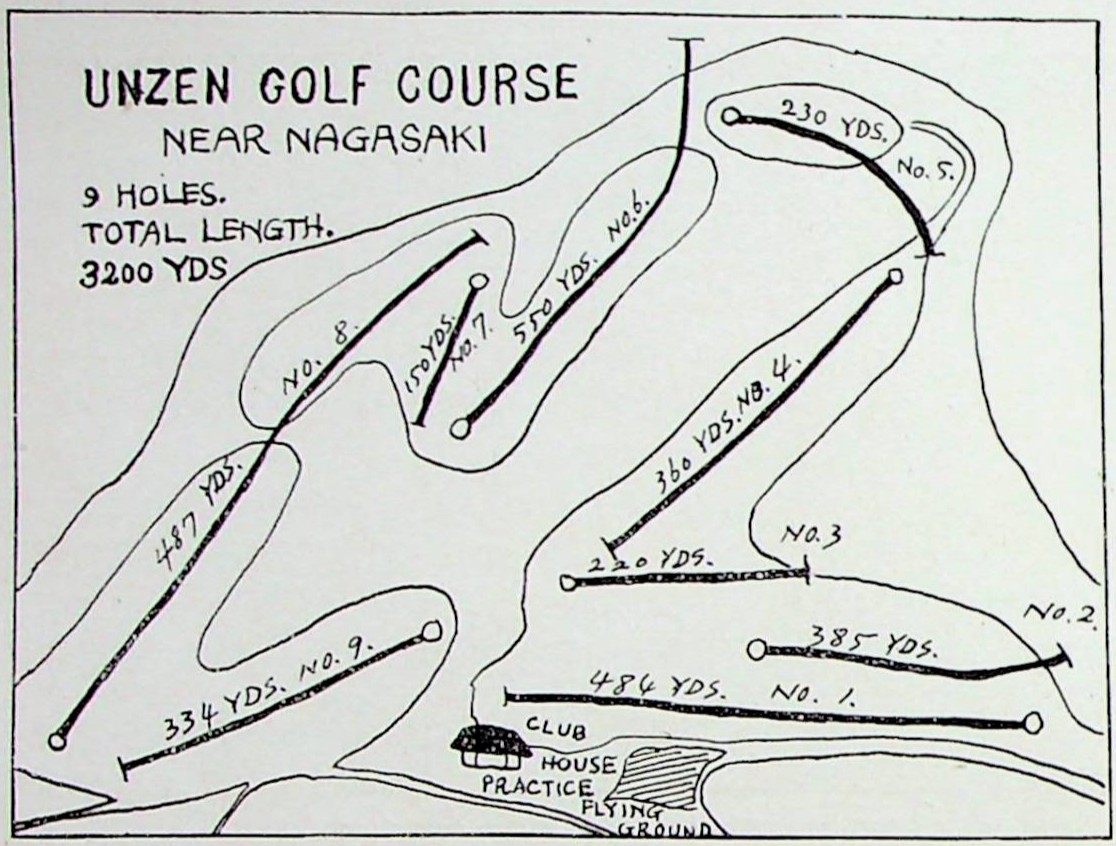 UNZEN GOLF COURSE
NEAR NAGASAKI
9 HOLES.
TOTAL LENGTH.
3200 YDS
230 YDS.
NO. 5.
550 YDS. NO.6.
150 YDS.
NO.7.
NO. 8.
487 YDS.
360 YDS. NO. 4.
NO.3
220 YDS.
NO.2.
385 YDS.
334 YDS. NO. 9.
484 YDS. NO. 1.
CLUB
HOUSE
PRACTICE
FLYING
GROUND